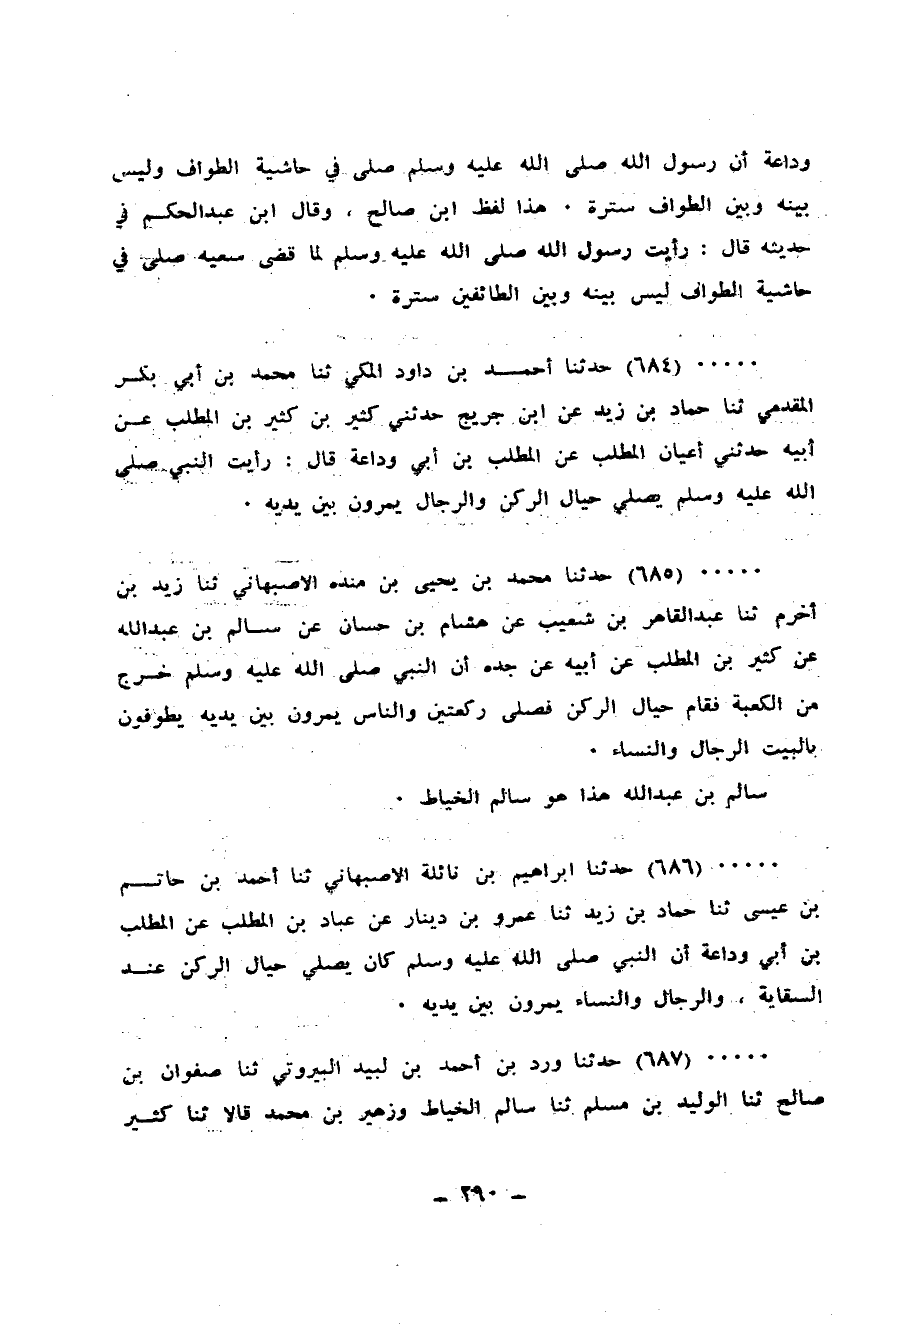 وداعة أن رسول الله صلى الله عليه وسلم صلى في حاشية الطواف وليس
بينه وبين الطواف سترة ٠ هذا لفظ ابن صالح ، وقال ابن عبدالحكم في
حديثه قال : رأيت رسول الله صلى الله عليه وسلم لما قضى سعيه صلى في
حاشية الطواف ليس بينه وبين الطائفين سترة ٠
٠٠٠٠٠ (٦٨٤) حدثنا أحمد بن داود المكي ثنا محمد بن أبي بكر
المقدمي ثنا حماد بن زيد عن ابن جريج حدثني كثير بن كثير بن المطلب عن
أبيه حدثني أعيان المطلب عن المطلب بن أبي وداعة قال : رأيت النبي صلى
الله عليه وسلم يصلي حيال الركن والرجال يمرون بين يديه ٠
٠٠٠٠٠ (٦٨٥) حدثنا محمد بن يحيى بن منده الاصبهاني ثنا زيد بن
أخرم ثنا عبدالقاهر بن شعيب عن هشام بن حسان عن سالم بن عبدالله
عن كثير بن المطلب عن أبيه عن جده أن النبي صلى الله عليه وسلم خرج
من الكعبة فقام حيال الركن فصلى ركعتين والناس يمرون بين يديه يطوفون
بالبيت الرجال والنساء ٠
سالم بن عبدالله هذا هو سالم الخياط ٠
٠٠٠٠٠ (٦٨٦) حدثنا ابراهيم بن نائلة الاصبهاني ثنا أحمد بن حاتم
بن عيسى ثنا حماد بن زيد ثنا عمرو بن دينار عن عباد بن المطلب عن المطلب
بن أبي وداعة أن النبي صلى الله عليه وسلم كان يصلي حيال الركن عند
السقاية ، والرجال والنساء يمرون بين يديه ٠
٠٠٠٠٠ (٦٨٧) حدثنا ورد بن أحمد بن لبيد البيروتي ثنا صفوان بن
صالح ثنا الوليد بن مسلم ثنا سالم الخياط وزهير بن محمد قالا ثنا كثير
– ٢٩٠ –